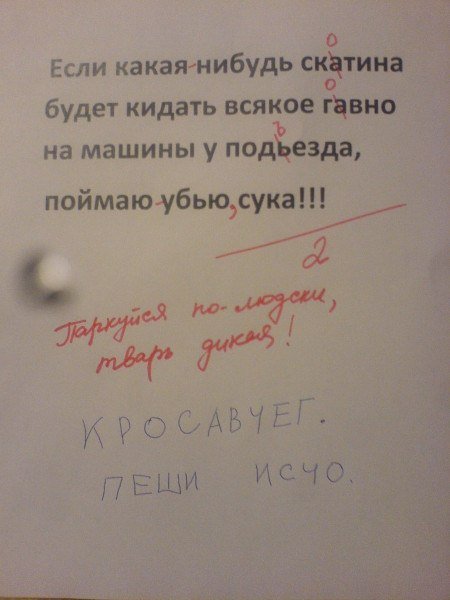 о
Если какая-нибудь скатина
о
будет кидать всякое гавно
ъ
на машины у подьезда,
поймаю-убью, сука!!!
2
Паркуйся по-людски,
тварь дикая!
КРОСАВЧЕГ.
ПЕШИ ИСЧО.